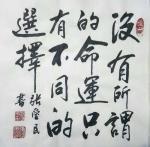 沒有所謂
的命運只
有不同的
選擇
書